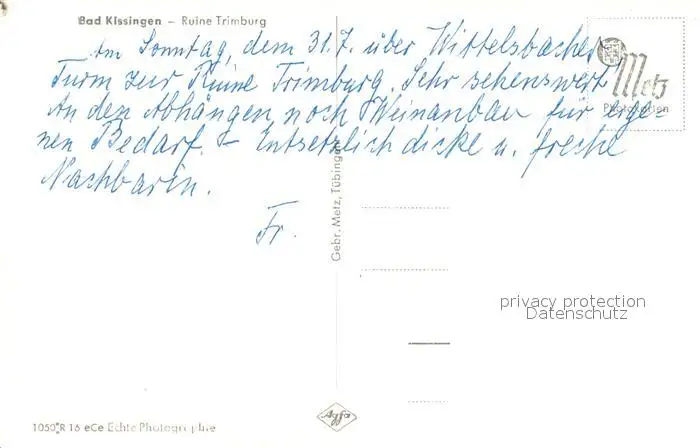 Bad Kissingen – Ruine Trimburg
Am Sonntag, dem 31.7. über Wittelsbacher
Turm zur Ruine Trimburg. Sehr sehenswert!
An den Abhängen noch Weinanbau für eige=
nen Bedarf. – Entsetzlich dicke u. freche
Nachbarin.
Fr.
Metz
Photokarten
Gebr. Metz, Tübingen
privacy protection
Datenschutz
Agfa
1050 R 16 eCe Echte Photographie